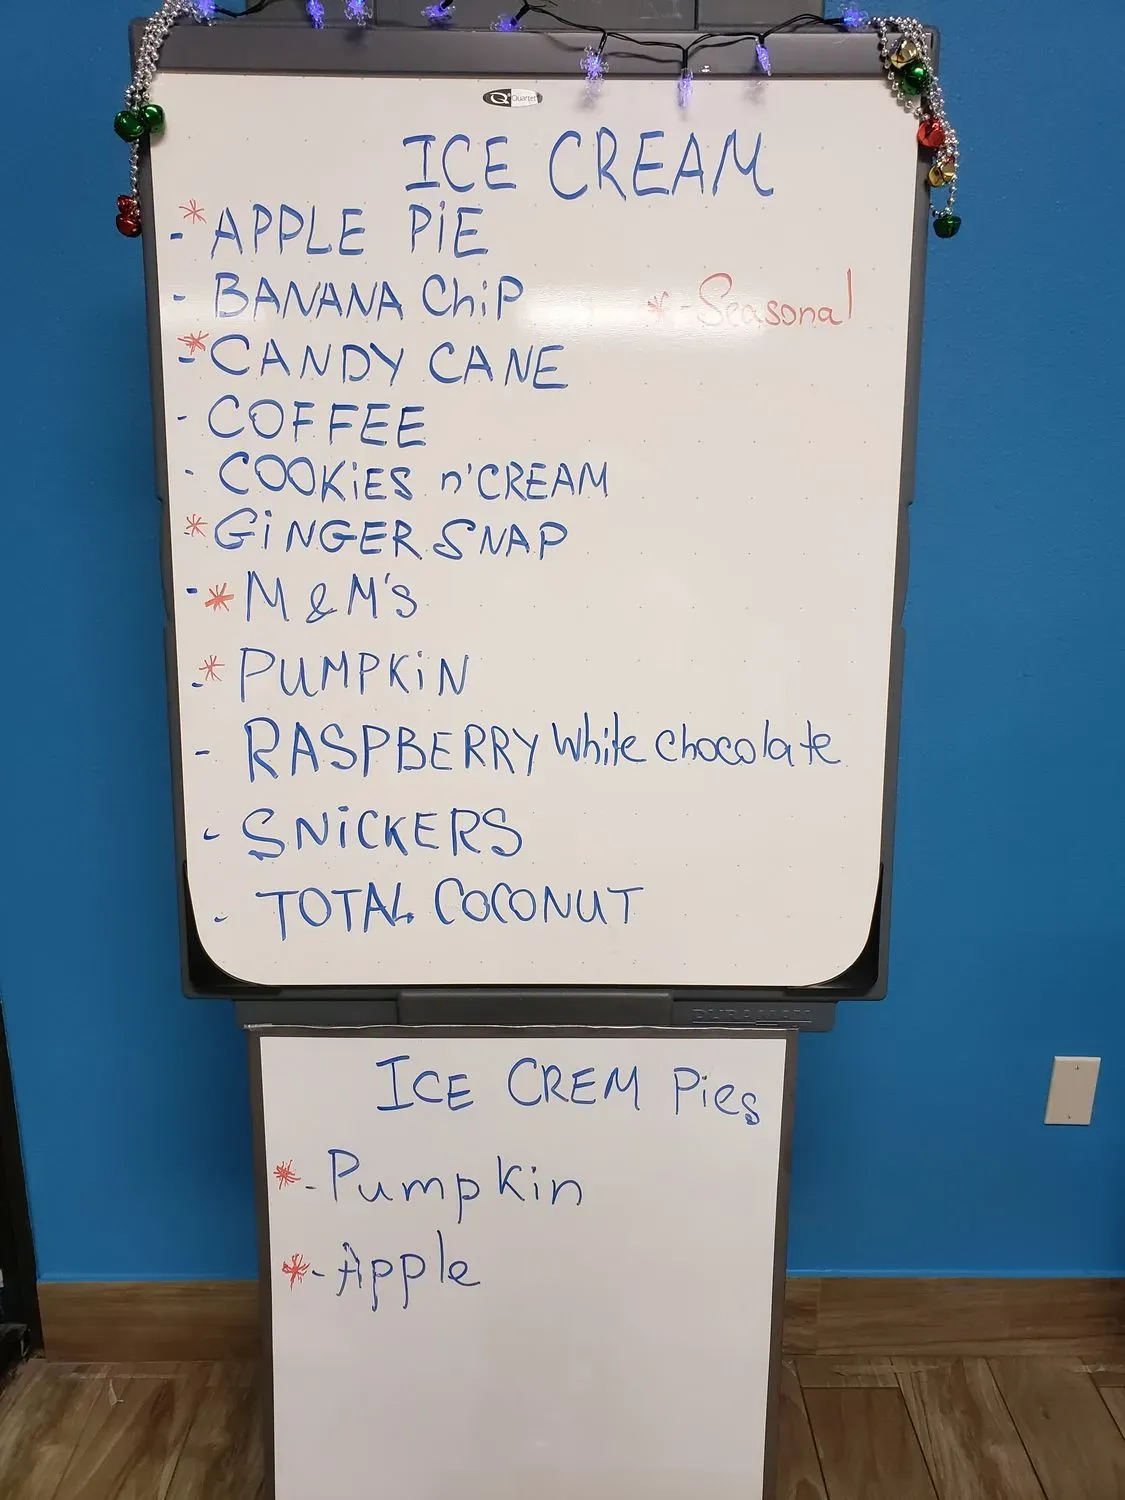 Quartet
ICE CREAM
* - APPLE PiE
- BANANA ChiP
* - Seasonal
* - CANDY CANE
- COFFEE
- COOKiES n'CREAM
* - GiNGER SNAP
- * M & M's
* - PUMPKiN
- RASPBERRY White chocolate
- SNiCKERS
- TOTAL COCONUT
DURAMAX
ICE CREM Pies
* - Pumpkin
* - Apple